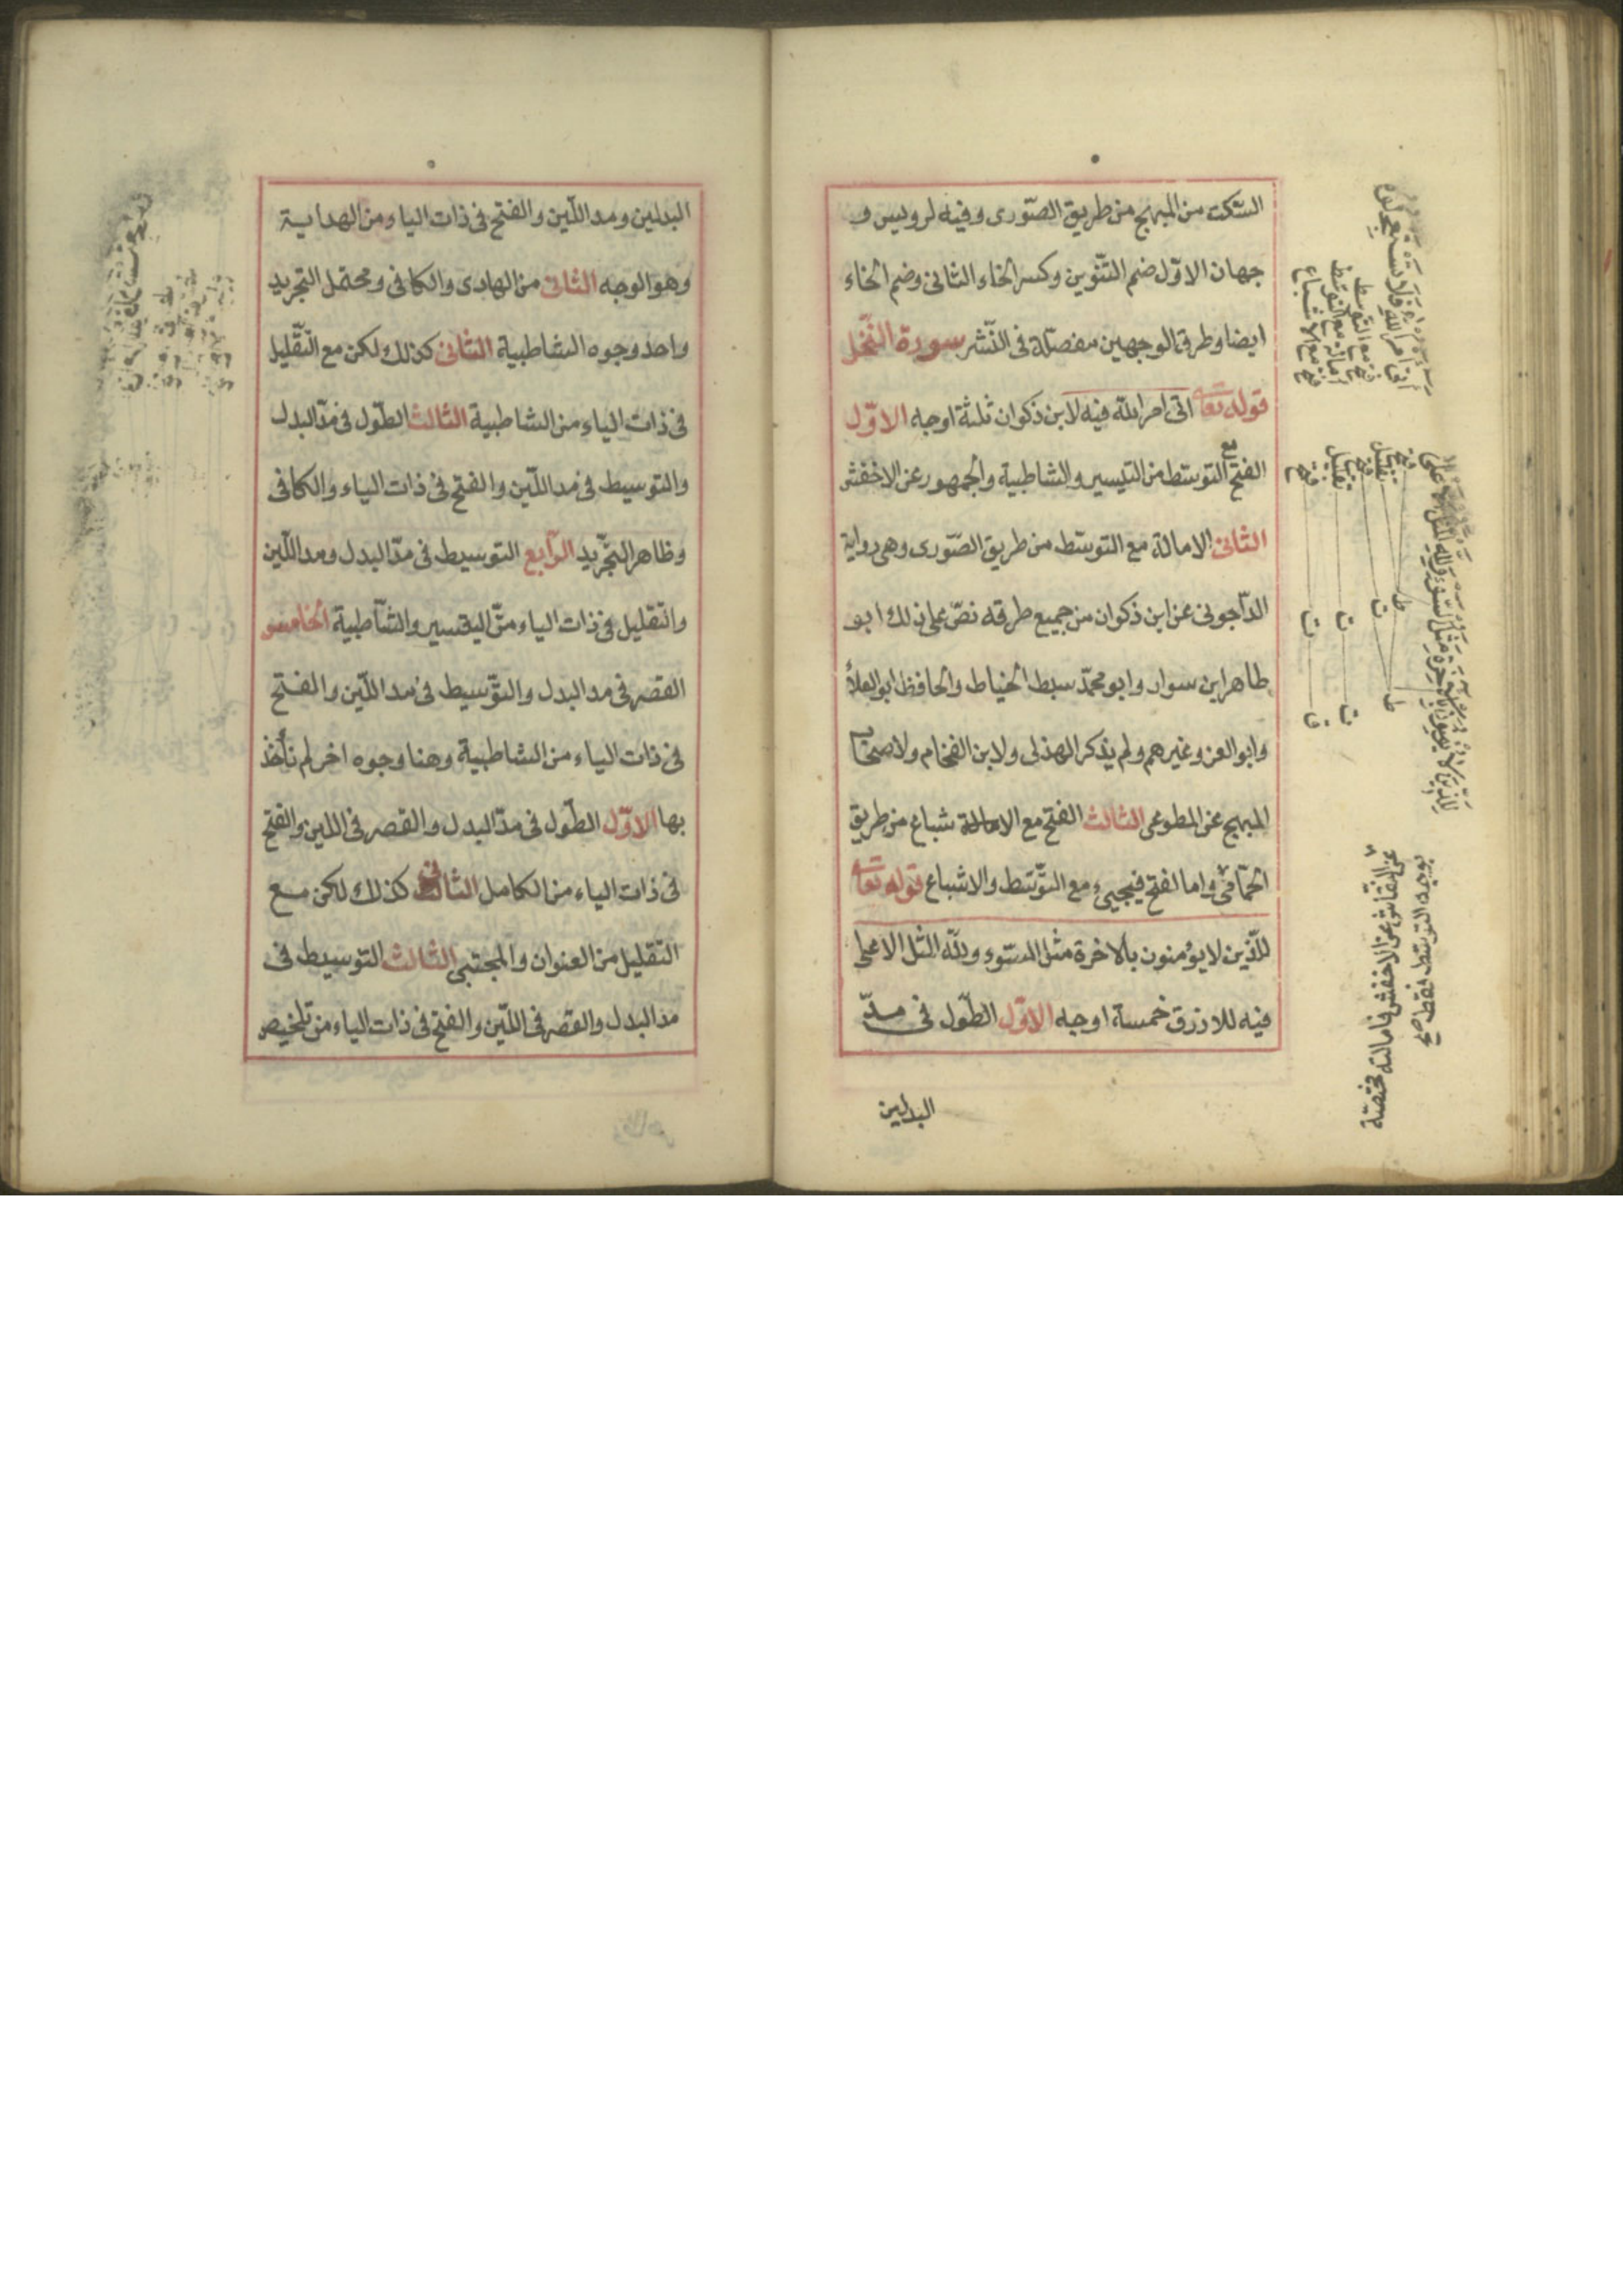 السكت من المبهج من طريق الصّورى وفيه لرويس و
جهان الاوّل ضم التّنوين وكسر الخاء الثانى وضم الخاء
ايضا وطرق الوجهين مفصّلة فى النّشر سورة النّحل
قوله تعا اتى امر اللّه فيه لابن ذكوان ثلثة اوجه الاوّل
الفتح مع التوسّط من التيسير والشاطبية والجمهور عن الاخفش
الثانى الامالة مع التوسّط من طريق الصّورى وهى رواية
الدّاجونى عن ابن ذكوان من جميع طرقه نصّ على ذلك ابو
طاهر ابن سوار وابو محمّد سبط الخياط والحافظ ابو العلأ
وابو العز وغيرهم ولم يذكر الهذلى ولا ابن الفحام ولا صحاب
المبهج عن المطوعى الثالث الفتح مع الا شباع من طريق
الحمّامى واما الفتح فيجيئ مع التّوسّط والاشباع قوله تعا
للّذين لا يؤمنون بالاخرة مثل السّوء وللّه المثل الاعلى
فيه للازرق خمسة اوجه الاوّل الطّول فى مدّ
البدلين
اتى امر الله فلا تستعجلوه
فتح مع التوسط
امالة مع التوسط
فتح مع الاشباع
للذين لا يؤمنون بالاخرة مثل السوء ولله المثل الاعلى
فتح
تقليل
فتح
تقليل
فتح
عن النقاش عن الاخفش فامالته مختصة
بوجه التوسط فقط صح
البدلين ومد اللّين والفتح فى ذات اليا ومن الهداية
وهو الوجه الثانى من الهادى والكافى ومحتمل التجريد
واحد وجوه الشاطبية الثانى كذلك لكن مع التّقليل
فى ذات الياء من الشاطبية الثالث الطّول فى مدّ البدل
والتوسيط فى مد اللّين والفتح فى ذات الياء والكافى
وظاهر التجريد الرّابع التوسيط فى مدّ البدل ومد اللّين
والتّقليل فى ذات الياء من التيسير والشّاطبية الخامس
القصر فى مد البدل والتّوسيط فى مد اللّين والفتح
فى ذات الياء من الشاطبية وهنا وجوه اخر لم نأخذ
بها الاوّل الطّول فى مدّ البدل والقصر فى اللين والفتح
فى ذات الياء من الكامل الثانى كذلك لكن مع
التّقليل من العنوان والمجتبى الثالث التوسيط فى
مد البدل والقصر فى اللّين والفتح فى ذات الياء من تلخيص